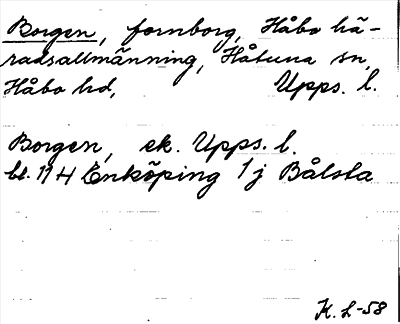 Borgen, fornborg, Håbo hä-
radsallmänning, Håtuna sn,
Håbo hd, Upps. l.
Borgen, ek. Upps. l.
bl. 114 Enköping 1j Bålsta
K. L-58